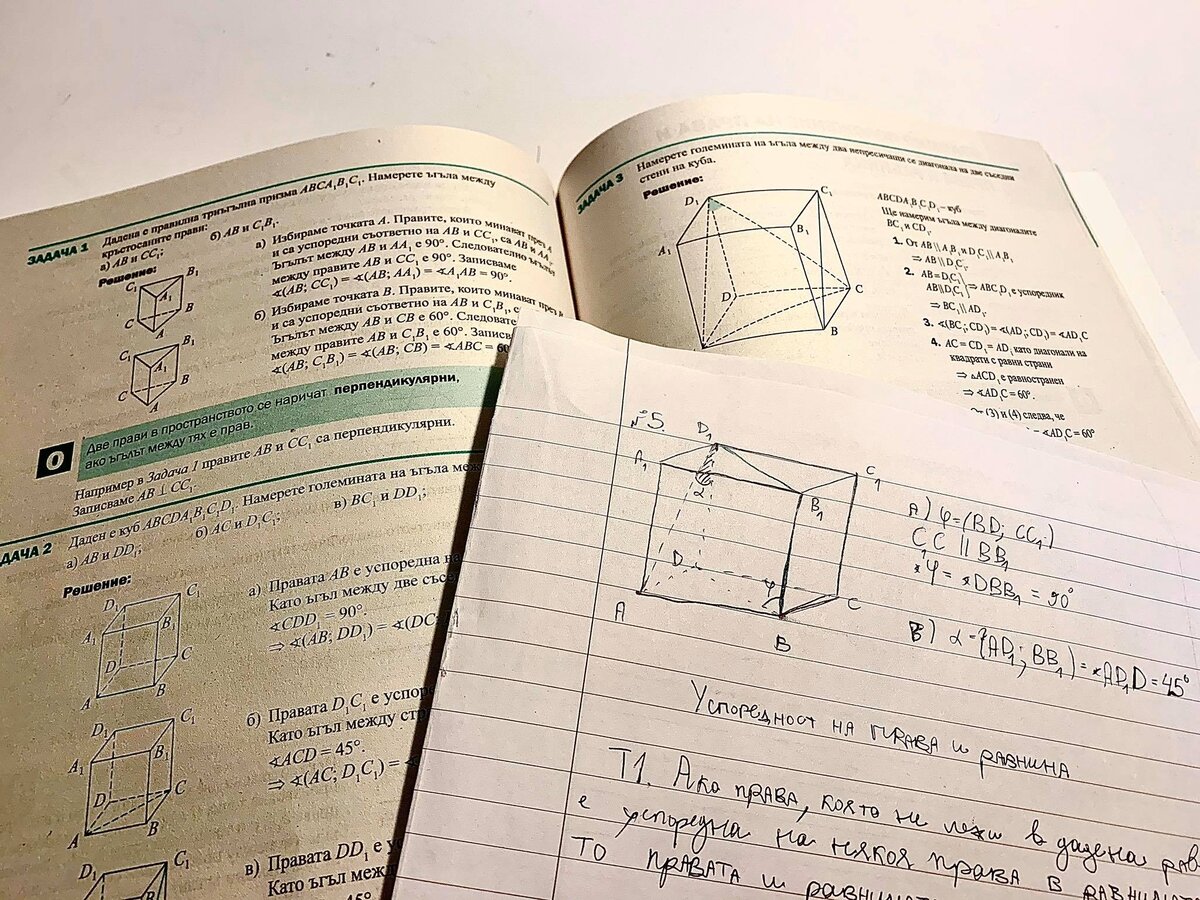 ЗАДАЧА 1
Дадена е правилна триъгълна призма ABCA₁B₁C₁. Намерете ъгъла между
кръстосаните прави:
а) AB и CC₁; б) AB и C₁B₁.
Решение:
а) Избираме точката A. Правите, които минават през A
и са успоредни съответно на AB и CC₁, са AB и AA₁.
Ъгълът между AB и AA₁ е 90°. Следователно ъгълът
между правите AB и CC₁ е 90°. Записваме
∢(AB; CC₁) = ∢(AB; AA₁) = ∢A₁AB = 90°.
б) Избираме точката B. Правите, които минават през
и са успоредни съответно на AB и C₁B₁,
Ъгълът между AB и CB е 60°.
между правите AB и C₁B₁ е 60°.
∢(AB; C₁B₁) = ∢(AB; CB) = ∢ABC = 60
C₁ B₁
A₁
C B
A
C₁ B₁
A₁
C B
A
О
Две прави в пространството се наричат перпендикулярни,
ако ъгълът между тях е прав.
Например в Задача 1 правите AB и CC₁ са перпендикулярни.
Записваме AB ⊥ CC₁.
ДАЧА 2
Даден е куб ABCDA₁B₁C₁D₁. Намерете големината на ъгъла
а) AB и DD₁; б) AC и D₁C₁; в) BC₁ и DD₁;
Решение:
а) Правата AB е успоредна на
Като ъгъл между две
∢CDD₁ = 90°.
⇒ ∢(AB; DD₁) = ∢(DC;
D₁ C₁
A₁ B₁
D C
A B
б) Правата D₁C₁ е
Като ъгъл между
∢ACD = 45°.
⇒ ∢(AC; D₁C₁) =
D₁ C₁
A₁ B₁
D C
A B
в) Правата DD₁ е
Като ъгъл
45°.
D₁ C₁
ЗАДАЧА 3
Намерете големината на ъгъла между два непресичащи се диагонала на две съседни
стени на куба.
Решение:
D₁ C₁
A₁ B₁
D C
B
ABCDA₁B₁C₁D₁ – куб
Ще намерим ъгъла между диагоналите
BC₁ и CD₁.
1. От AB ∥ A₁B₁ и D₁C₁ ∥ A₁B₁
⇒ AB ∥ D₁C₁.
2. AB = D₁C₁
AB ∥ D₁C₁ ⇒ ABC₁D₁ е успоредник
⇒ BC₁ ∥ AD₁.
3. ∢(BC₁; CD₁) = ∢(AD₁; CD₁) = ∢AD₁C
4. AC = CD₁ = AD₁ като диагонали на
квадрати с равни страни
⇒ △ACD₁ е равностранен
⇒ ∢AD₁C = 60°.
(3) и (4) следва, че
∢AD₁C = 60°
№5.
D₁ C₁
A₁ B₁
α
D φ C
A B
А) φ = (BD; CC₁)
CC₁ ∥ BB₁
∢φ = ∢DBB₁ = 90°
Б) α = (AD₁; BB₁) = ∢AD₁D = 45°
Успоредност на права и равнина
Т1. Ако права, която не лежи в дадена
е успоредна на някоя права в
то правата и